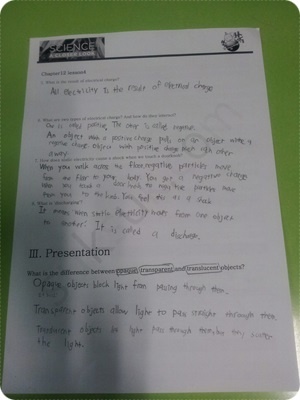 SCIENCE
Chapter 12 lesson4
1. What is the result of electrical charge?
All electricity is the result of electrical charge
2. What are two types of electrical charge? And how do they interact?
One is called positive. The other is called negative.
An object with a positive charge pulls on an object with a
negative charge. objects with positive charge push each other
away
3. How does static electricity cause a shock when we touch a doorknob?
When you walk across the floor, negative particles move
from the floor to your body. You get a negative charge
When you touch a door knob, the negative particles move
from you to the knob. You feel this as a shock.
4. What is discharge?
It means when static electricity moves from one object
to another. It is called a discharge.
III. Presentation
What is the difference between opaque, transparent, and translucent objects?
Opaque objects block light from passing through them.
Transparent objects allow light to pass straight through them.
Translucent objects let light pass through them but they scatter
the light.